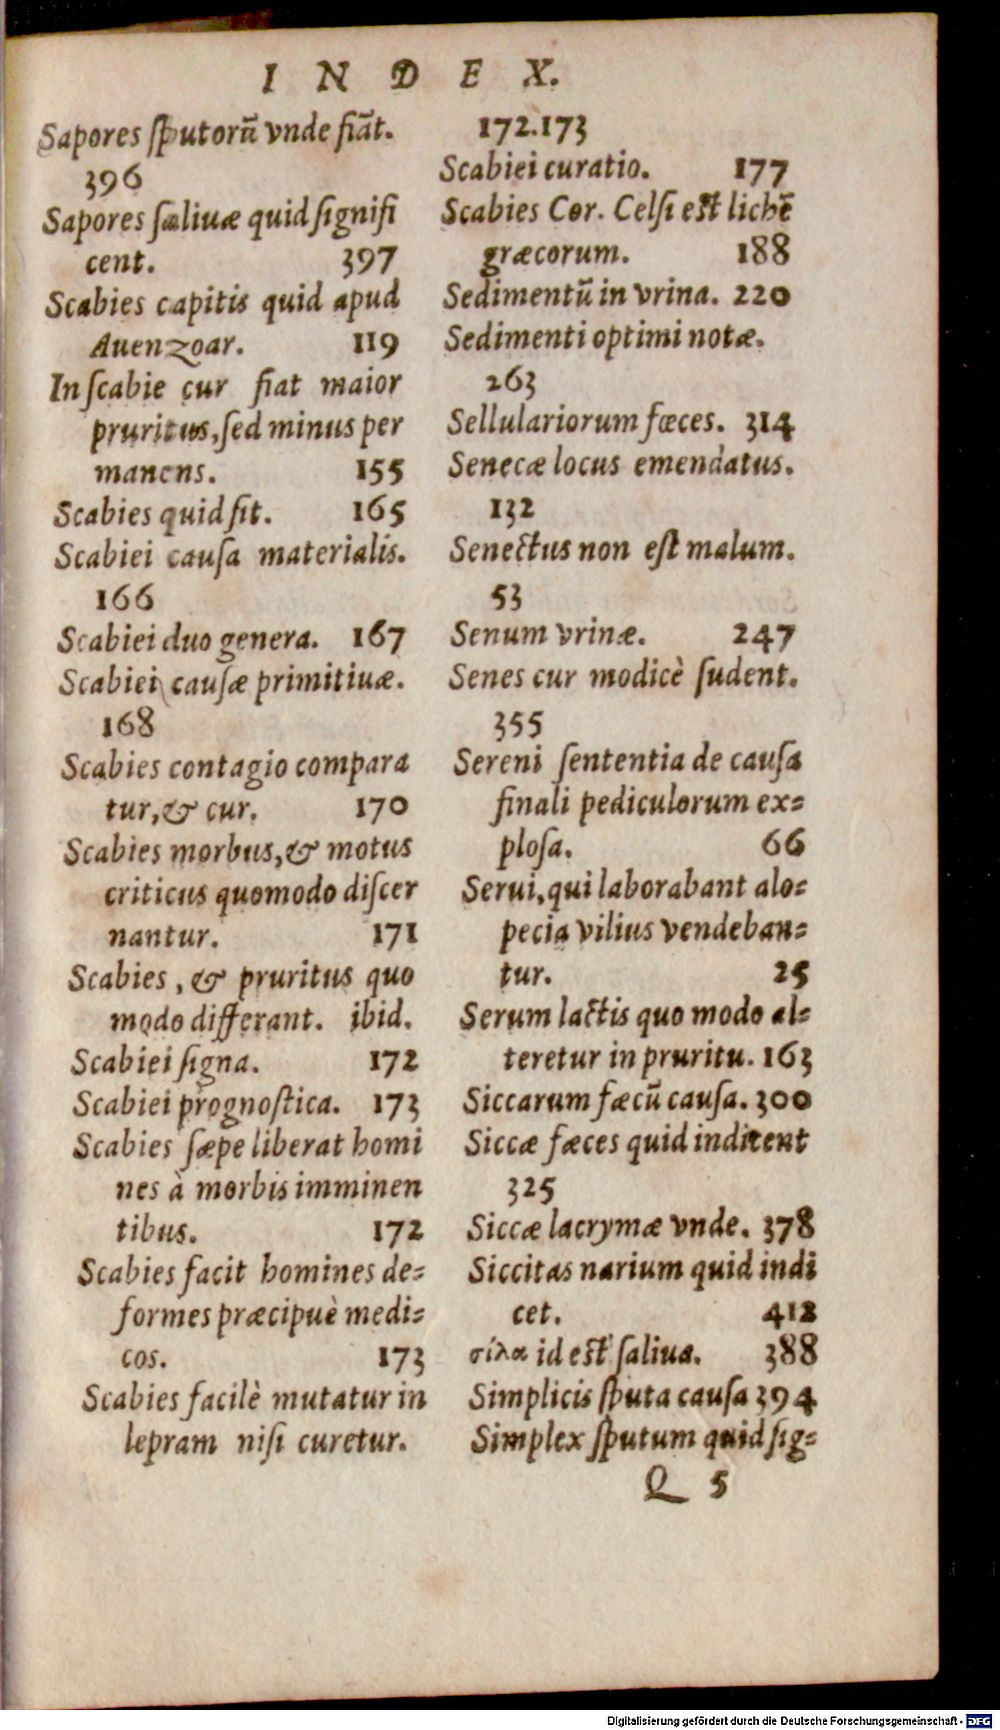 INDEX.
Sapores ſputorū vnde fiāt.
396
Sapores ſaliuæ quid ſignifi
cent. 397
Scabies capitis quid apud
Auenzoar. 119
In ſcabie cur fiat maior
pruritus, ſed minus per
manens. 155
Scabies quid ſit. 165
Scabiei cauſa materialis.
166
Scabiei duo genera. 167
Scabiei cauſæ primitiuæ.
168
Scabies contagio compara
tur, & cur. 170
Scabies morbus, & motus
criticus quomodo diſcer
nantur. 171
Scabies, & pruritus quo
modo differant. ibid.
Scabiei ſigna. 172
Scabiei prognoſtica. 173
Scabies ſæpe liberat homi
nes à morbis imminen
tibus. 172
Scabies facit homines de-
formes præcipuè medi-
cos. 173
Scabies facilè mutatur in
lepram niſi curetur.
172.173
Scabiei curatio. 177
Scabies Cor. Celſi eſt lichē
græcorum. 188
Sedimentū in vrina. 220
Sedimenti optimi notæ.
263
Sellulariorum fæces. 314
Senecæ locus emendatus.
132
Senectus non eſt malum.
53
Senum vrinæ. 247
Senes cur modicè ſudent.
355
Sereni ſententia de cauſa
finali pediculorum ex-
ploſa. 66
Serui, qui laborabant alo-
pecia vilius vendeban-
tur. 25
Serum lactis quo modo al-
teretur in pruritu. 163
Siccarum fæcū cauſa. 300
Siccæ fæces quid inditent
325
Siccæ lacrymæ vnde. 378
Siccitas narium quid indi
cet. 412
σίλα id eſt ſaliua. 388
Simplicis ſputa cauſa 394
Simplex ſputum quid ſig-
Q 5
Digitalisierung gefördert durch die Deutsche Forschungsgemeinschaft - DFG